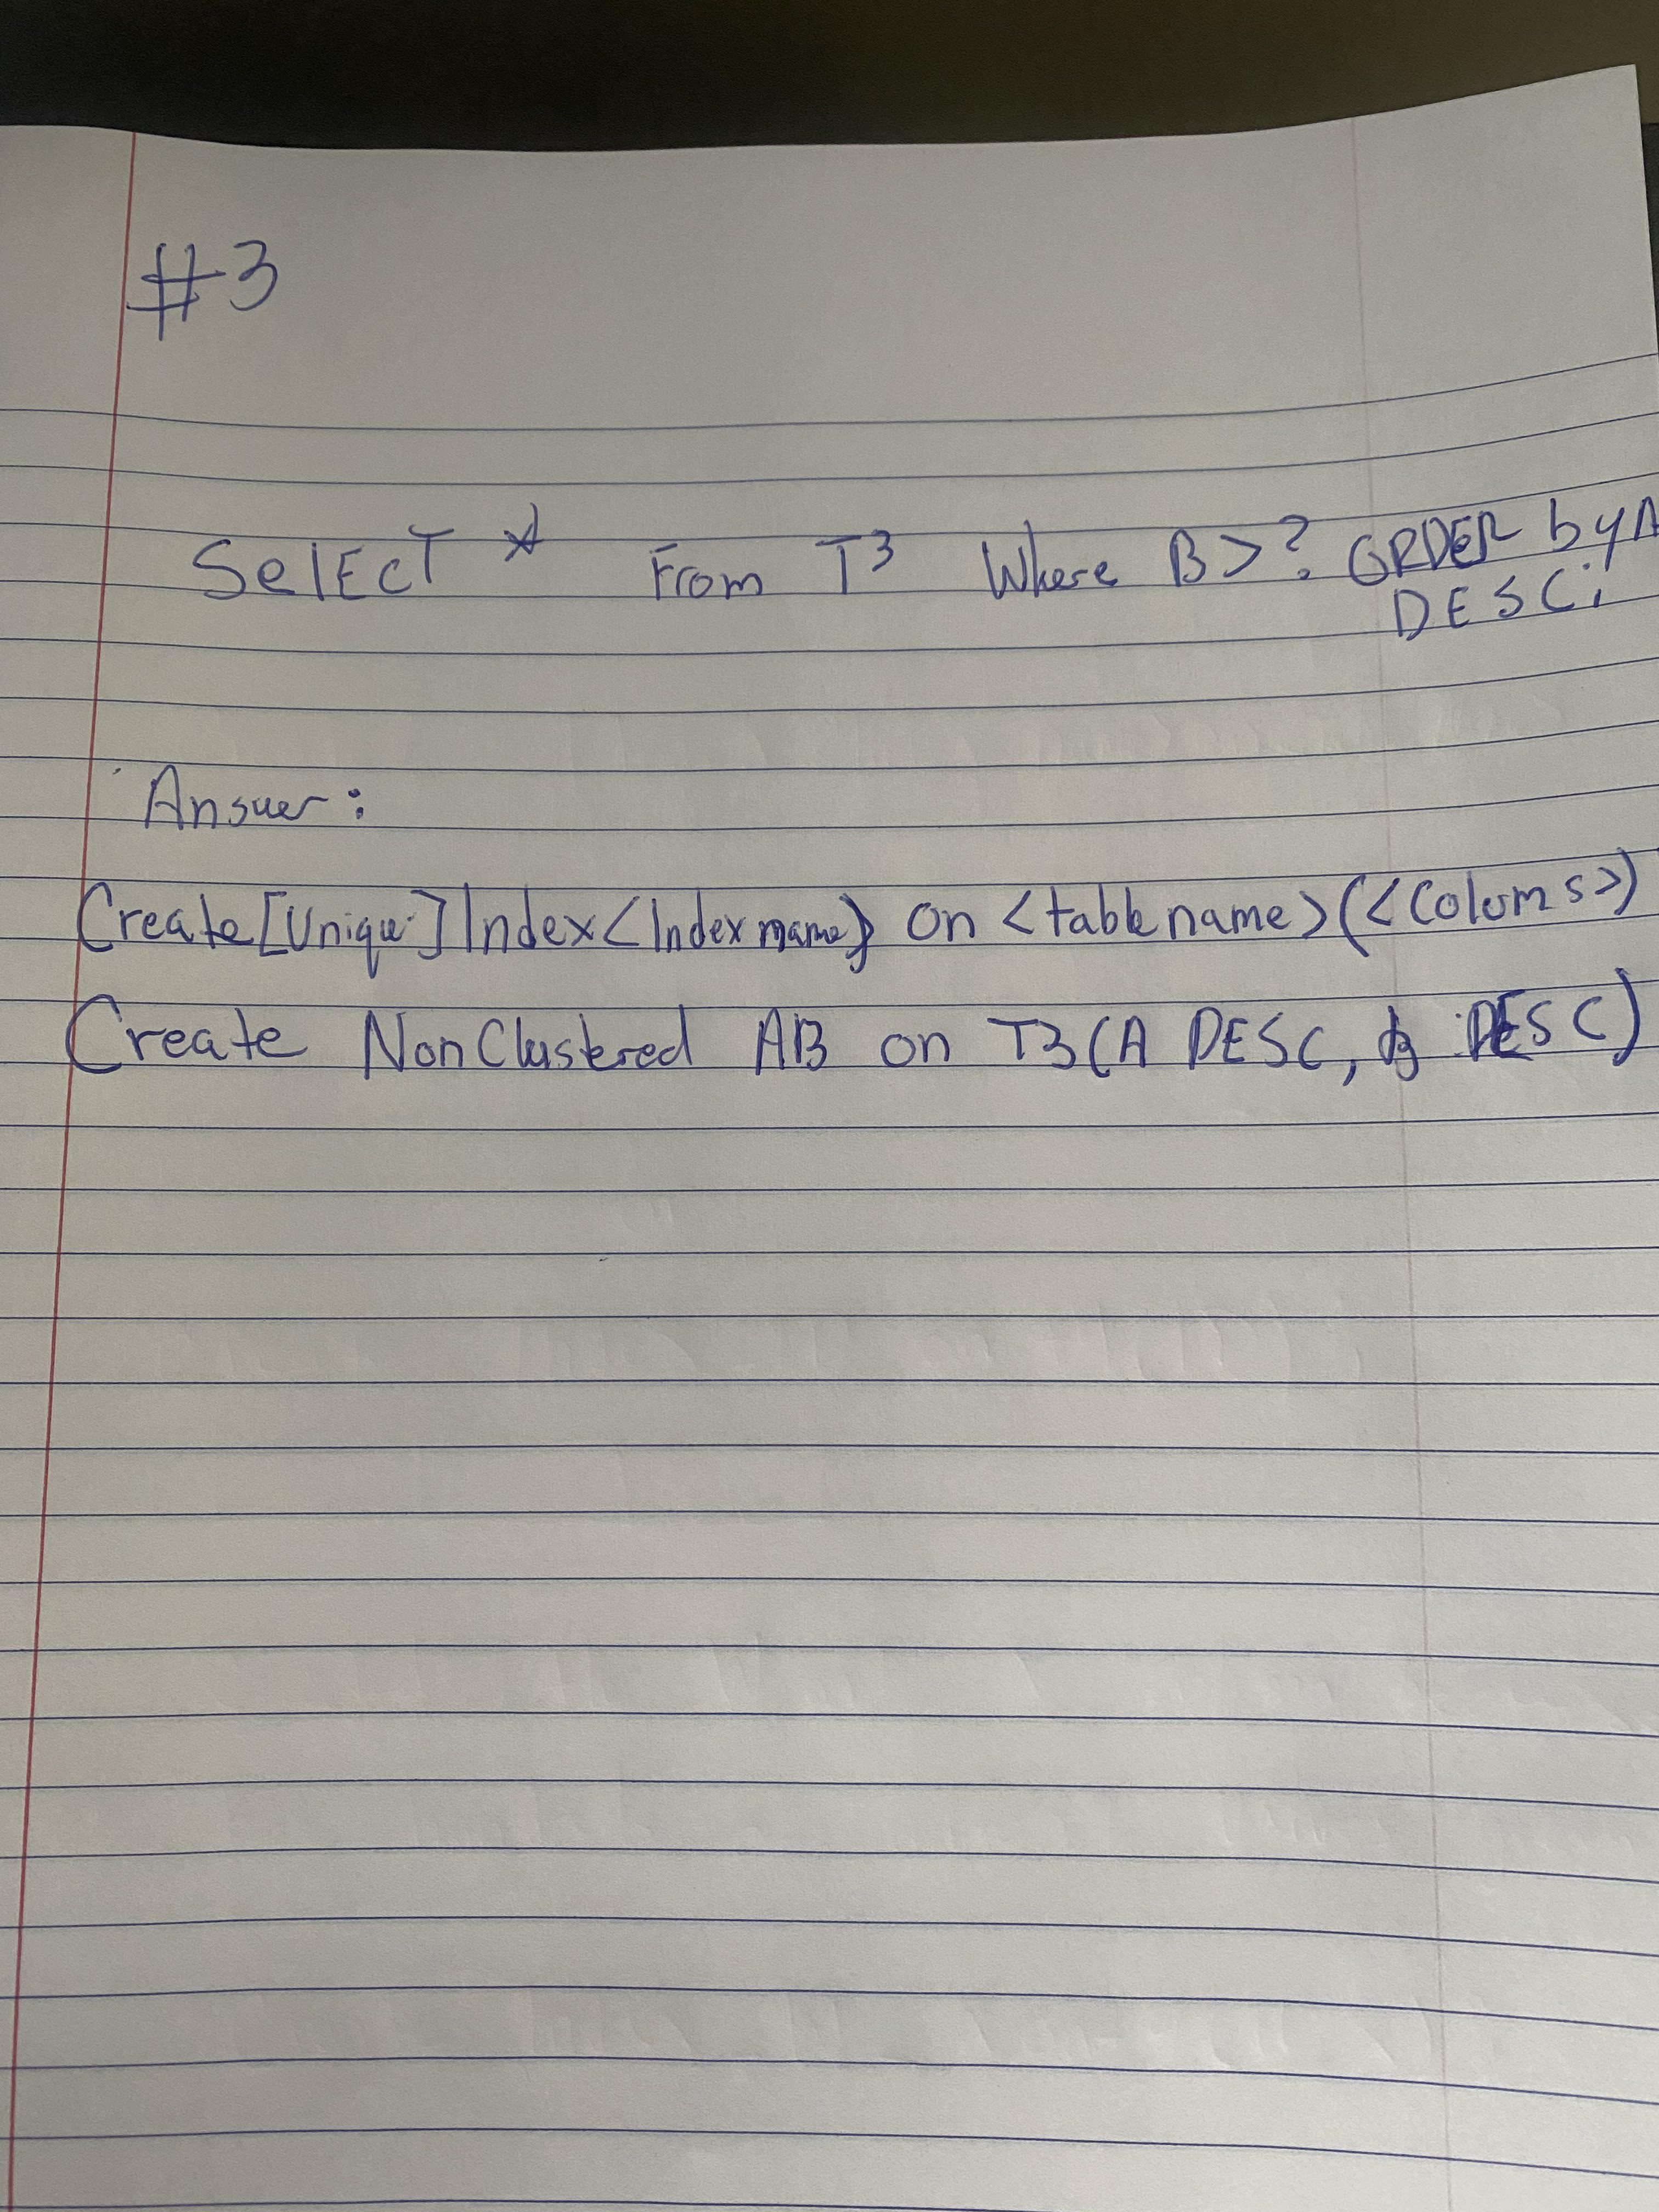 #3
SelEcT * From T3 Where B>? ORDER by A
DESC;
Answer:
Create [Unique] Index <Index name> on <table name> (<Colums>)
Create NonClustered AB on T3 (A DESC, B DESC)